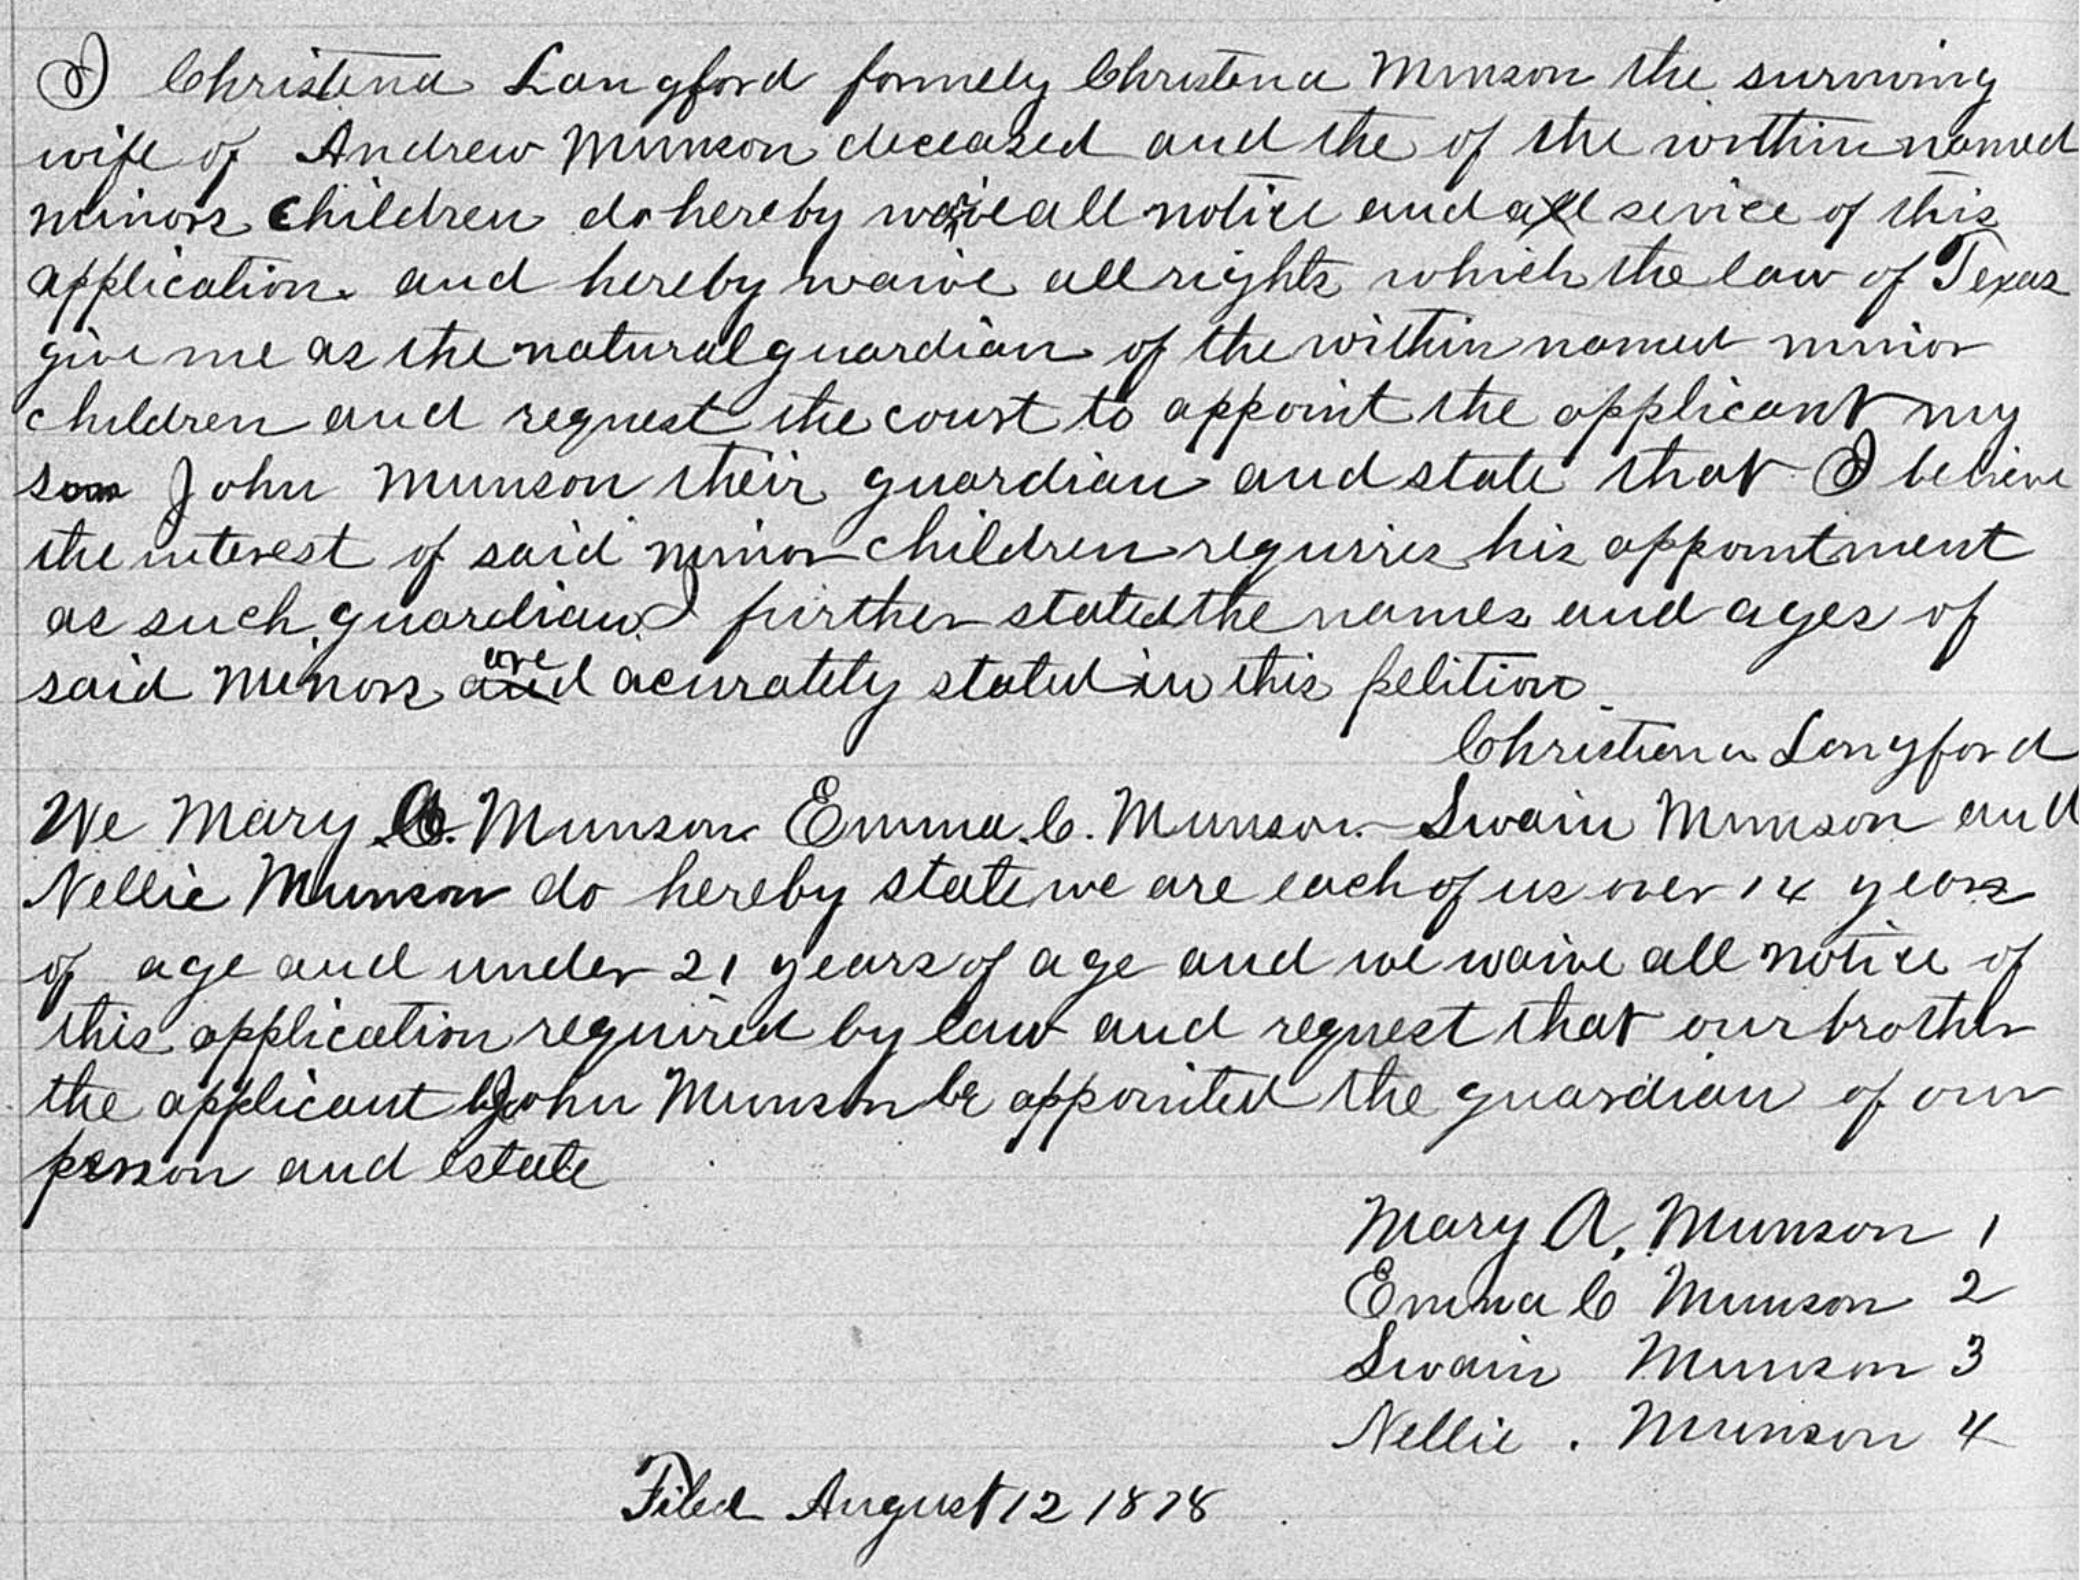 I Christena Langford formely Christena Munson the surviving
wife of Andrew Munson deceased and the of the within named
minors children do hereby waive all notice and all sevice of this
application and hereby waive all rights which the law of Texas
give me as the natural guardian of the within named minor
children and request the court to appoint the applicant my
son John Munson their guardian and state that I believe
the interest of said minor children requires his appointment
as such guardian I further stated the names and ages of
said minors are acurately stated in this petition
Christiena Langford
We Mary A. Munson Emma. C. Munson Swain Munson and
Nellie Munson do hereby state we are each of us over 14 years
of age and under 21 years of age and we waive all notice of
this application required by law and request that our brother
the applicant John Munson be appointed the guardian of our
person and estate
Mary A. Munson 1
Emma C Munson 2
Swain Munson 3
Nellie . Munson 4
Filed August 12 1878